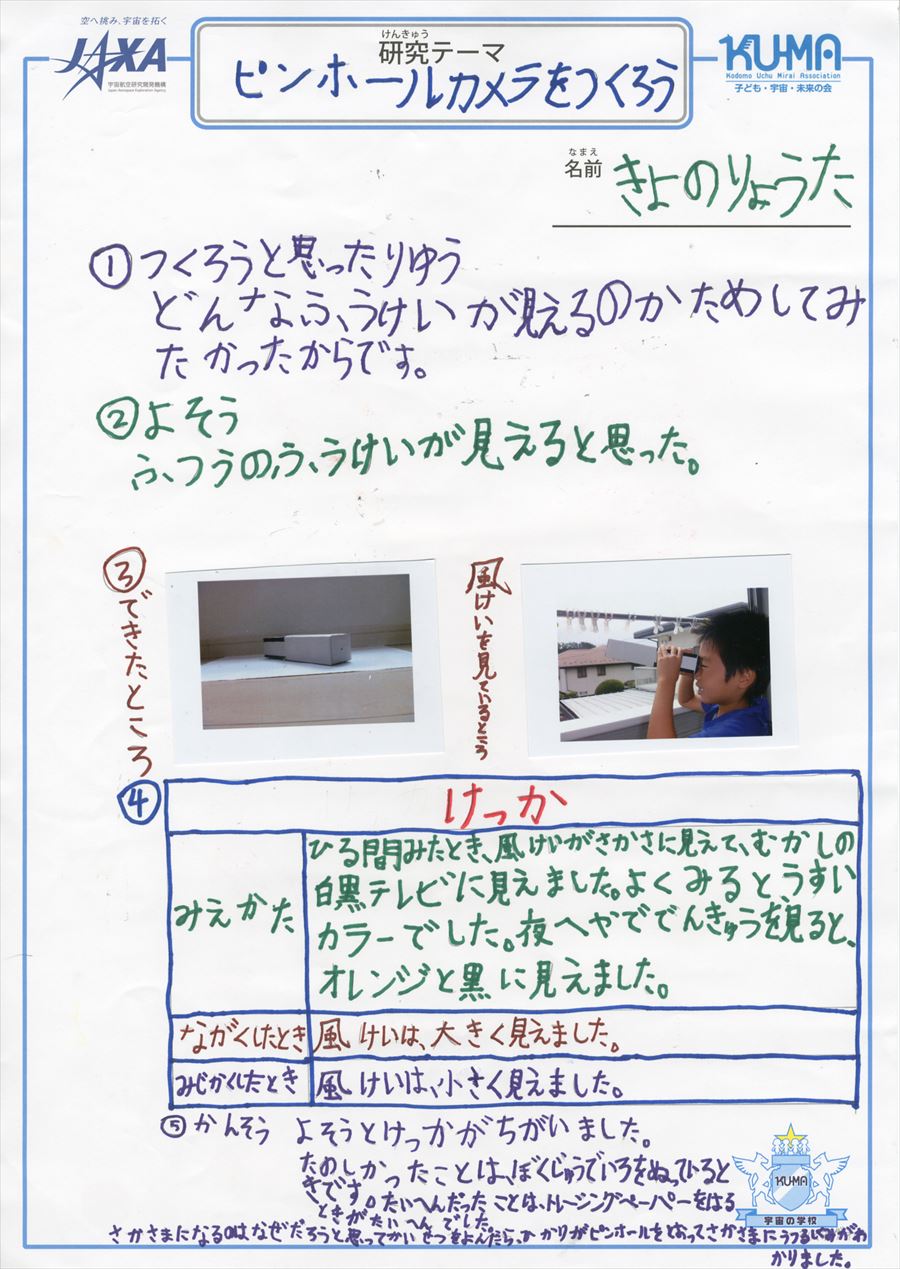 空へ挑み、宇宙を拓く
JAXA
宇宙航空研究開発機構
Japan Aerospace Exploration Agency
けんきゅう
研究テーマ
ピンホールカメラをつくろう
KU-MA
Kodomo Uchu Mirai Association
子ども・宇宙・未来の会
なまえ
名前 きよのりょうた
①つくろうと思ったりゆう
どんなふうけいが見えるのかためしてみ
たかったからです。
②よそう
ふつうのふうけいが見えると思った。
③できたところ
風けいを見ているところ
④
けっか
みえかた
ひる間みたとき、風けいがさかさに見えて、むかしの
白黒テレビに見えました。よくみるとうすい
カラーでした。夜へやででんきゅうを見ると、
オレンジと黒に見えました。
ながくしたとき 風けいは、大きく見えました。
みじかくしたとき 風けいは、小さく見えました。
⑤かんそう よそうとけっかがちがいました。
たのしかったことは、ぼくじゅうでいろをぬっていると
きです。たいへんだったことは、トレーシングペーパーをはる
ときがたいへんでした。
さかさまになるのはなぜだろうと思ってかいせつをよんだら、ひかりがピンホールをとおってさかさまにうつるしくみがわ
かりました。
KU-MA
宇宙の学校